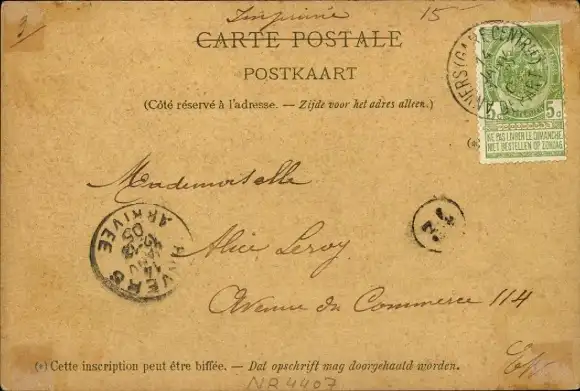 Imprimé 15
CARTE POSTALE
POSTKAART
(Côté réservé à l'adresse. — Zijde voor het adres alleen.)
5c
NE PAS LIVRER LE DIMANCHE
NIET BESTELLEN OP ZONDAG
Mademoiselle
Alice Leroy
Avenue du Commerce 114
ANVERS
ARRIVÉE
14
JANV
05
(*) Cette inscription peut être biffée. — Dat opschrift mag doorgehaald worden.
NR 4407